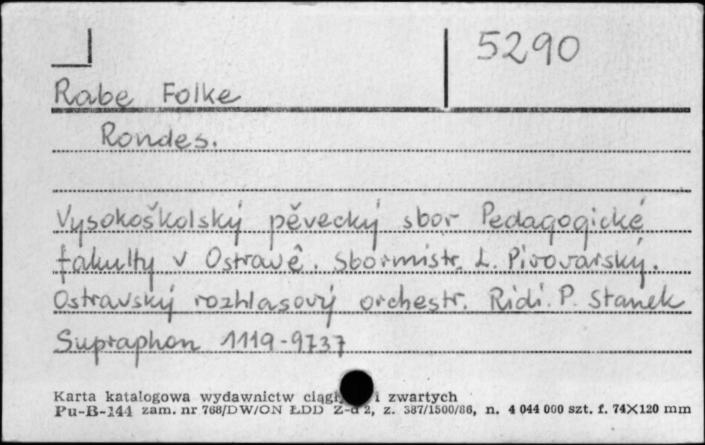 5290
Rabe Folke
Rondes.
Vysokoškolský pěvecký sbor Pedagogické
fakulty v Ostravê. Sbormistr. L. Pivovarský.
Ostravský rozhlasový orchestr. Ridi. P. Stanek
Supraphon 1119-9737
Karta katalogowa wydawnictw i zwartych
Pu-B-144 zam. nr 768/DW/ON ŁDD 2, z. 387/1500/86, n. 4 044 000 szt. f. 74×120 mm